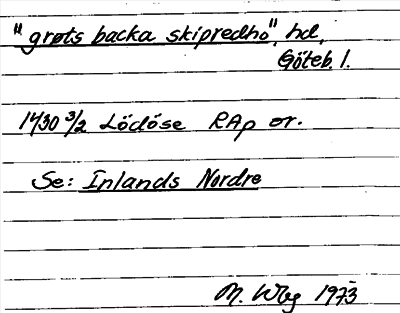 "grøts backa skipredho", hd,
Göteb. l.
1430 3/2 Lödöse RAp or.
Se: Inlands Nordre
M. Wbg 1973